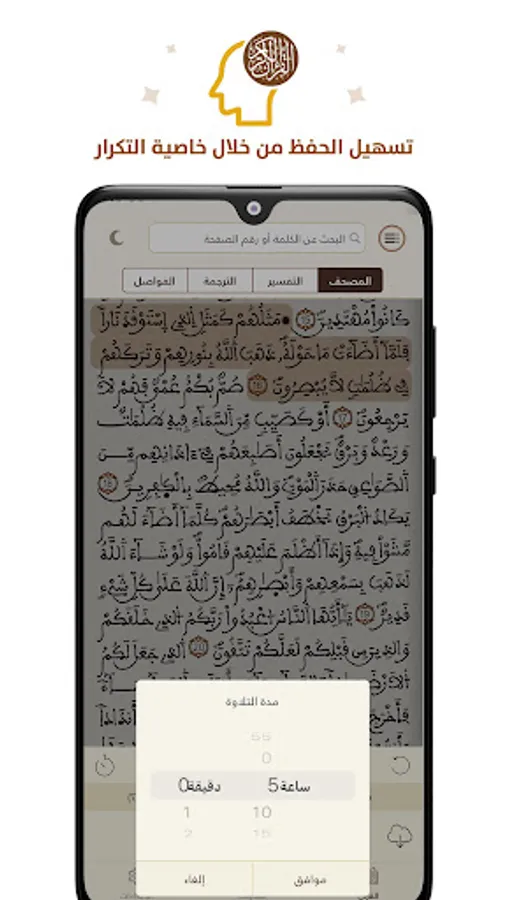 القرآن الكريم
تسهيل الحفظ من خلال خاصية التكرار
البحث عن الكلمة أو رقم الصفحة
المصحف التفسير الترجمة الفواصل
كَانُواْ مُهْتَدِينَ 15 مَثَلُهُمْ كَمَثَلِ اِلذِے اِسْتَوْقَدَ نَاراٗ
فَلَمَّآ أَضَآءَتْ مَا حَوْلَهُۥ ذَهَبَ اَللَّهُ بِنُورِهِمْ وَتَرَكَهُمْ
فِے ظُلُمَٰتٖ لَّا يُبْصِرُونَ 16 صُمُّۢ بُكْمٌ عُمْيٞ فَهُمْ لَا
يَرْجِعُونَ 17 أَوْ كَصَيِّبٖ مِّنَ اَلسَّمَآءِ فِيهِ ظُلُمَٰتٞ
وَرَعْدٞ وَبَرْقٞ يَجْعَلُونَ أَصَٰبِعَهُمْ فِےٓ ءَاذَانِهِم مِّنَ
اَلصَّوَٰعِقِ حَذَرَ اَلْمَوْتِ وَاللَّهُ مُحِيطُۢ بِالْكٰفِرِينَ 18
يَكَادُ اُلْبَرْقُ يَخْطَفُ أَبْصَٰرَهُمْ كُلَّمَآ أَضَآءَ لَهُم
مَّشَوْاْ فِيهِ وَإِذَآ أَظْلَمَ عَلَيْهِمْ قَامُواْ وَلَوْ شَآءَ اَللَّهُ
لَذَهَبَ بِسَمْعِهِمْ وَأَبْصٰ۪رِهِمُۥٓ إِنَّ اَللَّهَ عَلَىٰ كُلِّ شَےْءٖ
قَدِيرٞ 19 يَٰٓأَيُّهَا اَلنَّاسُ اُعْبُدُواْ رَبَّكُمُ اُلذِے خَلَقَكُمْ
وَالذِينَ مِن قَبْلِكُمْ لَعَلَّكُمْ تَتَّقُونَ 20 اَلذِے جَعَلَ لَكُمُ
اُلَارْضَ
فَأَخْرَجَ أَندَاداٗ
مدة التلاوة
55
0
ساعة 5 دقيقة 0
10 1
15 2
موافق إلغاء